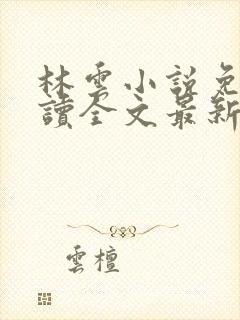 林雲小說免
讀全文最新
雲檀